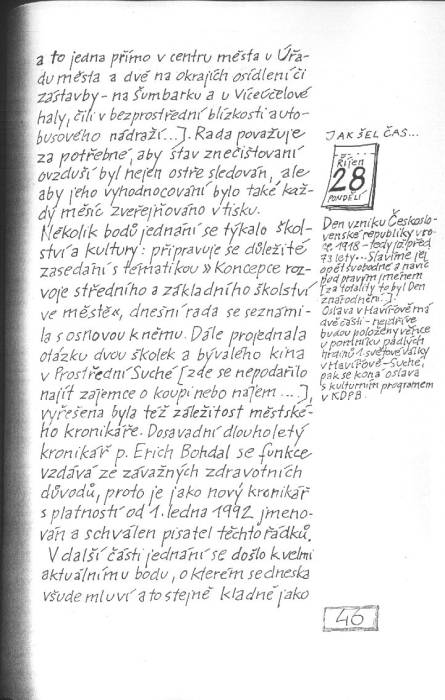 a to jedna přímo v centru města u Úřa-
du města a dvě na okrajích osídlení či
zástavby - na Šumbarku a u Víceúčelové
haly, čili v bezprostřední blízkosti auto-
busového nádraží...]. Rada považuje
za potřebné, aby stav znečišťování
ovzduší byl nejen ostře sledován, ale
aby jeho vyhodnocování bylo také kaž-
dý měsíc zveřejňováno v tisku.
Několik bodů jednání se týkalo škol-
ství a kultury: připravuje se důležité
zasedání s tematikou »Koncepce roz-
voje středního a základního školství
ve městě«, dnešní rada se seznámi-
la s osnovou k němu. Dále projednala
otázku dvou školek a bývalého kina
v Prostřední Suché [zde se nepodařilo
najít zájemce o koupi nebo nájem ...],
vyřešena byla též záležitost městské-
ho kronikáře. Dosavadní dlouholetý
kronikář p. Erich Bohdal se funkce
vzdává ze závažných zdravotních
důvodů, proto je jako nový kronikář
s platností od 1. ledna 1992 jmeno-
ván a schválen pisatel těchto řádků.
V další části jednání se došlo k velmi
aktuálnímu bodu, o kterém se dneska
všude mluví a to stejně kladně jako
JAK ŠEL ČAS...
Říjen
28
PONDĚLÍ
Den vzniku Českoslo-
venské republiky v ro-
ce 1918 - tedy již před
73 lety... Slavíme jej
opět svobodně a navíc
pod pravým jménem
[za totality to byl Den
znárodnění...].
Oslava v Havířově má
dvě části - nejdříve
budou položeny věnce
u pomníku padlých
hrdinů 1. světové války
v Havířově - Suché,
pak se koná oslava
s kulturním programem
v KDPB.
46